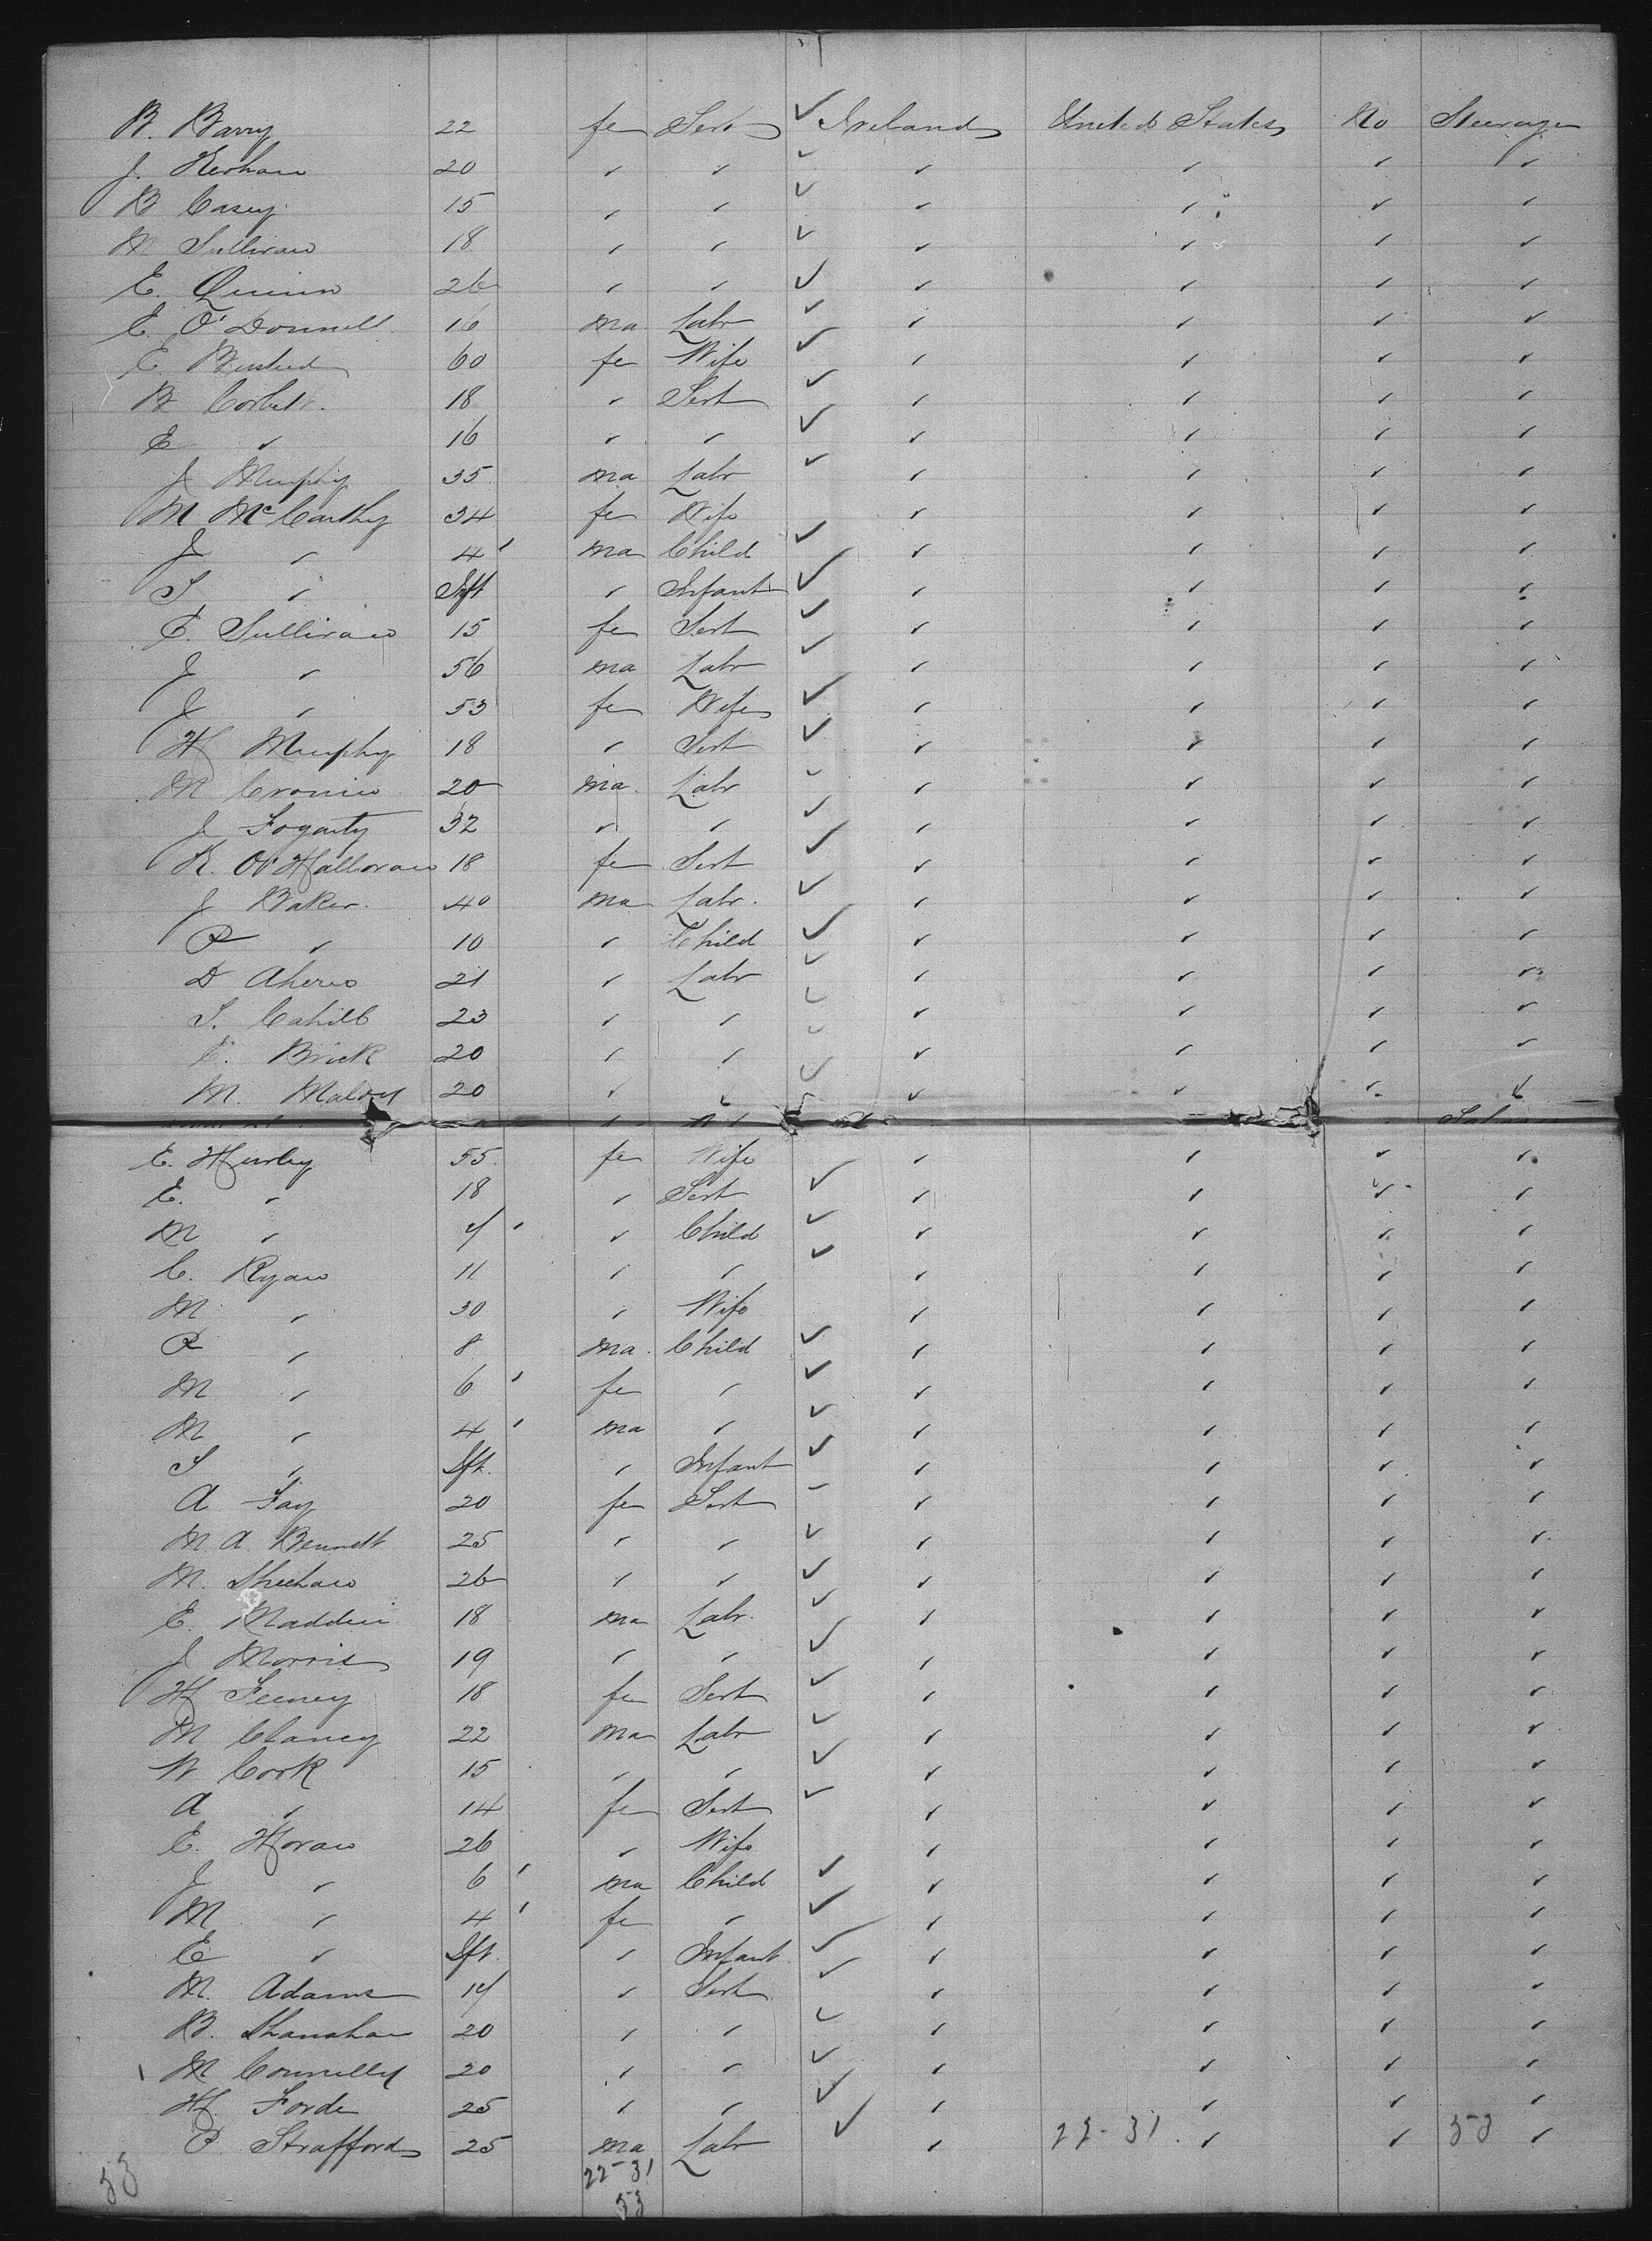 B. Barry 22 fe Sert ✓ Ireland United States No Steerage
J. 20 ✓ ✓ ✓ ✓ ✓ ✓ ✓
B Casey 15 ✓ ✓ ✓ ✓ ✓ ✓ ✓
M Sullivan 18 ✓ ✓ ✓ ✓ ✓ ✓ ✓
E. Quinn 26 ✓ ✓ ✓ ✓ ✓ ✓ ✓
E. O'Donnell 16 ma Labr ✓ ✓ ✓ ✓ ✓
E. 60 fe Wife ✓ ✓ ✓ ✓ ✓
B Corbett. 18 ✓ Sert ✓ ✓ ✓ ✓ ✓
E ✓ 16 ✓ ✓ ✓ ✓ ✓ ✓ ✓
J Murphy 35 ma Labr ✓ ✓ ✓ ✓ ✓
M McCarthy 34 fe Wife ✓ ✓ ✓ ✓
J ✓ 4 ma Child ✓ ✓ ✓ ✓ ✓
S ✓ Inft ✓ Infant ✓ ✓ ✓ ✓ ✓
E. Sullivan 15 fe Sert ✓ ✓ ✓ ✓ ✓
J ✓ 56 ma Labr ✓ ✓ ✓ ✓ ✓
J ✓ 53 fe Wife ✓ ✓ ✓ ✓ ✓
H Murphy 18 ✓ Sert ✓ ✓ ✓ ✓ ✓
M Cronin 20 ma. Labr ✓ ✓ ✓ ✓ ✓
J Fogarty 32 ✓ ✓ ✓ ✓ ✓ ✓ ✓
K. O'Halloran 18 fe Sert ✓ ✓ ✓ ✓ ✓
J Baker. 40 ma Labr. ✓ ✓ ✓ ✓ ✓
P ✓ 10 ✓ Child ✓ ✓ ✓ ✓ ✓
D Ahern 21 ✓ Labr ✓ ✓ ✓ ✓ ✓
S. Cahill 23 ✓ ✓ ✓ ✓ ✓ ✓ ✓
C. Brick 20 ✓ ✓ ✓ ✓ ✓ ✓ ✓
M. Malony 20 ✓ ✓ ✓ ✓ ✓ ✓ ✓
E. Hurley 55. fe Wife ✓ ✓ ✓ ✓
E. ✓ 18 ✓ Sert ✓ ✓ ✓ ✓ ✓
M ✓ 7 ✓ Child ✓ ✓ ✓ ✓ ✓
C. Ryan 11 ✓ ✓ ✓ ✓ ✓ ✓ ✓
M ✓ 30 ✓ Wife ✓ ✓ ✓ ✓
P ✓ 8 ma. Child ✓ ✓ ✓ ✓ ✓
M ✓ 6 fe ✓ ✓ ✓ ✓ ✓ ✓
M ✓ 4 ma ✓ ✓ ✓ ✓ ✓ ✓
S ✓ Ift. ✓ Infant ✓ ✓ ✓ ✓ ✓
A Fay 20 fe Sert ✓ ✓ ✓ ✓ ✓
M. A Bennett 25 ✓ ✓ ✓ ✓ ✓ ✓ ✓
M. Sheehan 26 ✓ ✓ ✓ ✓ ✓ ✓ ✓
E. Madden 18 ma Labr. ✓ ✓ ✓ ✓ ✓
J Morris 19 ✓ ✓ ✓ ✓ ✓ ✓ ✓
H Feeney 18 fe Sert ✓ ✓ ✓ ✓ ✓
M Clancy 22 ma Labr ✓ ✓ ✓ ✓ ✓
W Cook 15 ✓ ✓ ✓ ✓ ✓ ✓ ✓
A ✓ 14 fe Sert ✓ ✓ ✓ ✓ ✓
E. Horan 26 ✓ Wife ✓ ✓ ✓ ✓
J ✓ 6 ma Child ✓ ✓ ✓ ✓ ✓
M ✓ 4 fe ✓ ✓ ✓ ✓ ✓ ✓
E ✓ Ift. ✓ Infant ✓ ✓ ✓ ✓ ✓
M. Adams 17 ✓ Sert ✓ ✓ ✓ ✓ ✓
B. Shanahan 20 ✓ ✓ ✓ ✓ ✓ ✓ ✓
M Connelly 20 ✓ ✓ ✓ ✓ ✓ ✓ ✓
H Forde 25 ✓ ✓ ✓ ✓ ✓ ✓ ✓
P. Strafford 25 ma Labr ✓ ✓ 22-31 ✓ ✓ 53 ✓
53 22-31
53